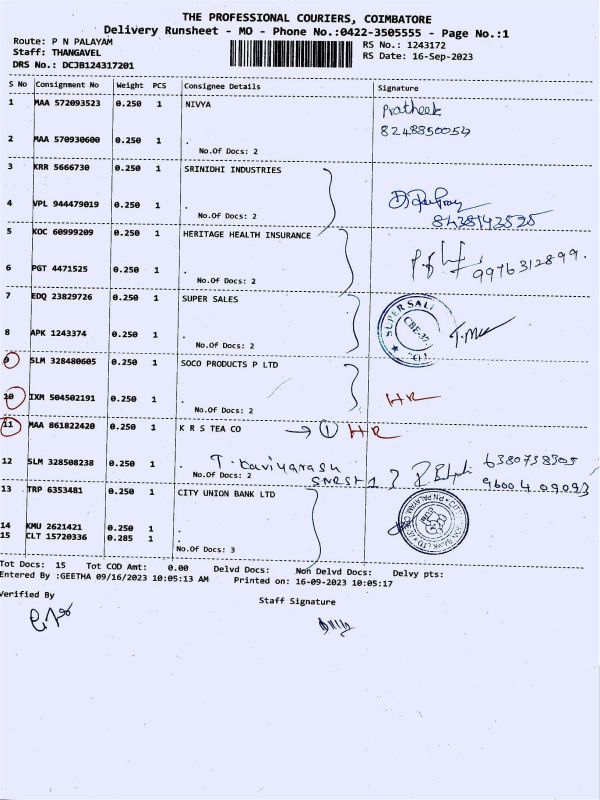 THE PROFESSIONAL COURIERS, COIMBATORE
Delivery Runsheet - MO - Phone No.:0422-3505555 - Page No.:1
Route: P N PALAYAM
RS No.: 1243172
Staff: THANGAVEL
RS Date: 16-Sep-2023
DRS No.: DCJB124317201
S No Consignment No Weight PCS Consignee Details Signature
1 MAA 572093523 0.250 1 NIVYA Pratheek
8248850054
2 MAA 570930600 0.250 1 .
No.Of Docs: 2
3 KRR 5666730 0.250 1 SRINIDHI INDUSTRIES
4 VPL 944479019 0.250 1 .
No.Of Docs: 2 8438143595
5 KOC 60999209 0.250 1 HERITAGE HEALTH INSURANCE
9976312899.
6 PGT 4471525 0.250 1 .
No.Of Docs: 2
7 EDQ 23829726 0.250 1 SUPER SALES
SUPER SALE
CBE-37.
8 APK 1243374 0.250 1 .
No.Of Docs: 2
9 SLM 328480605 0.250 1 SOCO PRODUCTS P LTD
10 IXM 504502191 0.250 1 . HR
No.Of Docs: 2
11 MAA 861822420 0.250 1 K R S TEA CO → 1 HR
12 SLM 328508238 0.250 1 . T. Kaviyarasu 6380738305
No.Of Docs: 2 96004 09093
13 TRP 6353481 0.250 1 CITY UNION BANK LTD
14 KMU 2621421 0.250 1 .
15 CLT 15720336 0.285 1 .
No.Of Docs: 3
Tot Docs: 15 Tot COD Amt: 0.00 Delvd Docs: Non Delvd Docs: Delvy pts:
Entered By :GEETHA 09/16/2023 10:05:13 AM Printed on: 16-09-2023 10:05:17
Verified By
Staff Signature